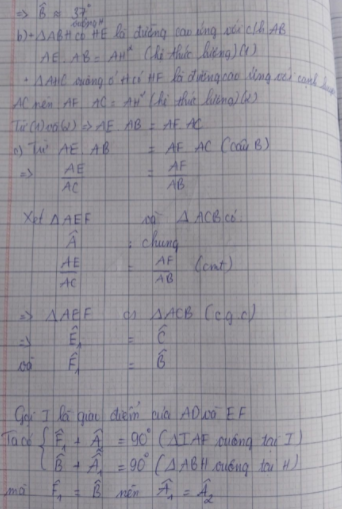 ⇒ B̂ ≈ 57°
b) + ΔABH vuông H có HE là đường cao ứng với cạnh AB
AE . AB = AH² (hệ thức lượng) (1)
+ ΔAHC vuông ở H có HF là đường cao ứng với cạnh
AC nên AF . AC = AH² (hệ thức lượng) (2)
Từ (1) và (2) ⇒ AE . AB = AF . AC
c) Từ AE . AB = AF . AC (câu B)
⇒ AE/AC = AF/AB
Xét ΔAEF và ΔACB có
Â = chung
AE/AC = AF/AB (cmt)
⇒ ΔAEF ∽ ΔACB (c g c)
⇒ Ê₁ = Ĉ
và F̂₁ = B̂
Gọi I là giao điểm của AO và EF
Ta có { F̂₁ + Â₂ = 90° (ΔIAF vuông tại I)
B̂ + Â₁ = 90° (ΔABH vuông tại H)
mà F̂₁ = B̂ nên Â₁ = Â₂